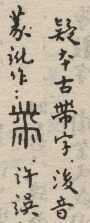 疑本古帶字.後音
篆訛作:.許誤